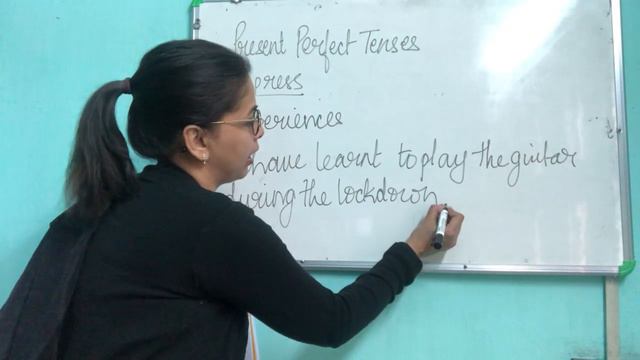 Present Perfect Tenses
press
periences
have learnt to play the guitar
during the lockdown